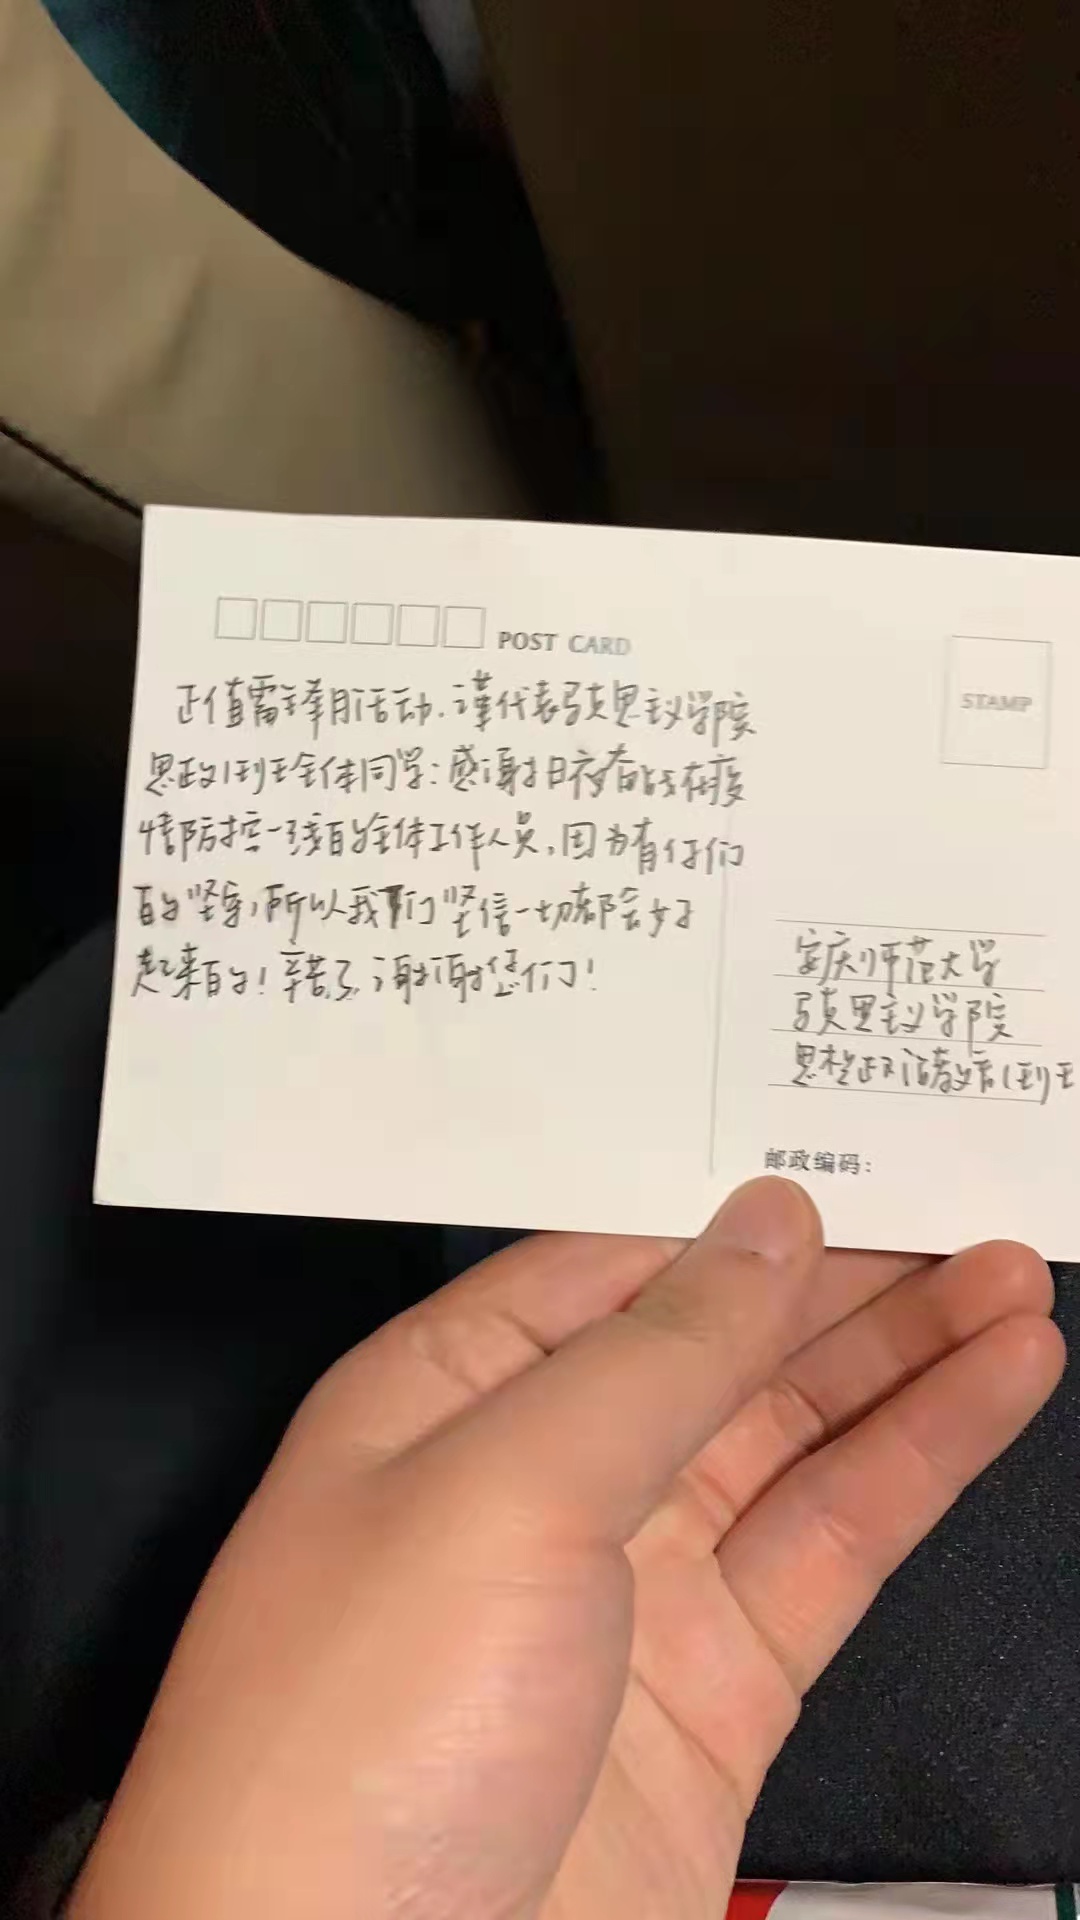 POST CARD
STAMP
正值雷锋月活动,谨代表马克思主义学院
思政1班全体同学:感谢日夜奋战在疫
情防控一线的全体工作人员,因为有你们
的坚守,所以我们坚信一切都会好
起来的!辛苦了,谢谢您们!
安庆师范大学
马克思主义学院
思想政治教育1班
邮政编码: